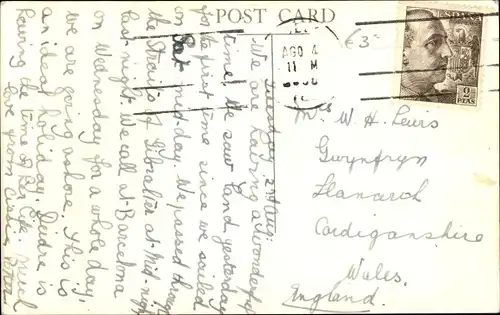 POST CARD
AGO 4
11 M
63
ESPAÑA
2
PTAS
Tuesday 2nd Aug:
We are having a wonderful
time! We saw land yesterday
for the first time since we sailed
on Sat mid-day. We passed through
the Straits of Gibralter at mid-night
last night. We call at Barcelona
on Wednesday for a whole day,
we are going ashore. This is
an ideal holiday. Deidre is
having the time of her life. Much
love from
W. H. Lewis
Gwynfryn
Llanarch
Cardiganshire
Wales.
England.